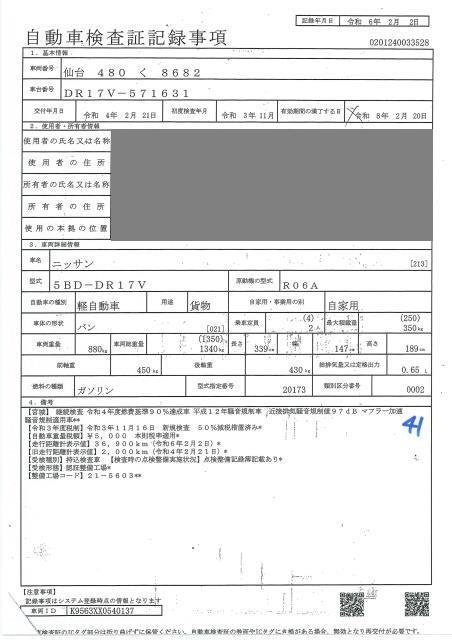 記録年月日 令和 6年 2月 2日
自動車検査証記録事項
0201240033528
1. 基本情報
車両番号 仙台 480 く 8682
車台番号 DR17V-571631
交付年月日 令和 4年 2月 21日 初度検査年月 令和 3年 11月 有効期間の満了する日 令和 8年 2月 20日
2. 使用者・所有者情報
使用者の氏名又は名称
使用者の住所
所有者の氏名又は名称
所有者の住所
使用の本拠の位置
3. 車両詳細情報
車名 ニッサン [213]
型式 5BD-DR17V 原動機の型式 R06A
自動車の種別 軽自動車 用途 貨物 自家用・事業用の別 自家用
車体の形状 バン [021] 乗車定員 (4) 2人 最大積載量 (250) 350kg
車両重量 880kg 車両総重量 (1350) 1340kg 長さ 339cm 幅 147cm 高さ 189cm
前軸重 450kg 後軸重 430kg 総排気量又は定格出力 0.65 L
燃料の種類 ガソリン 型式指定番号 20173 類別区分番号 0002
4. 備考
【宮城】 継続検査 令和4年度燃費基準90%達成車 平成12年騒音規制車 近接排気騒音規制値97dB マフラー加速
騒音規制適用車**
【令和3年度税制】令和3年11月16日 新規検査 50%減税措置済み*
【自動車重量税額】¥5,000 本則税率適用*
【走行距離計表示値】36,900km(令和6年2月2日)*
【旧走行距離計表示値】2,000km(令和4年2月21日)*
【受検種別】持込検査車 【検査時の点検整備実施状況】点検整備記録簿記載あり*
【受検形態】認証整備工場*
【整備工場コード】21-5603**
41
【注意事項】
記録事項はシステム登録時点の情報となります
車両ID K9563XX0540137
車検査証のICタグ部分は折り曲げずに保管ください。自動車検査証の券面やICタグにき損がある場合、無効となり再交付が必要です。